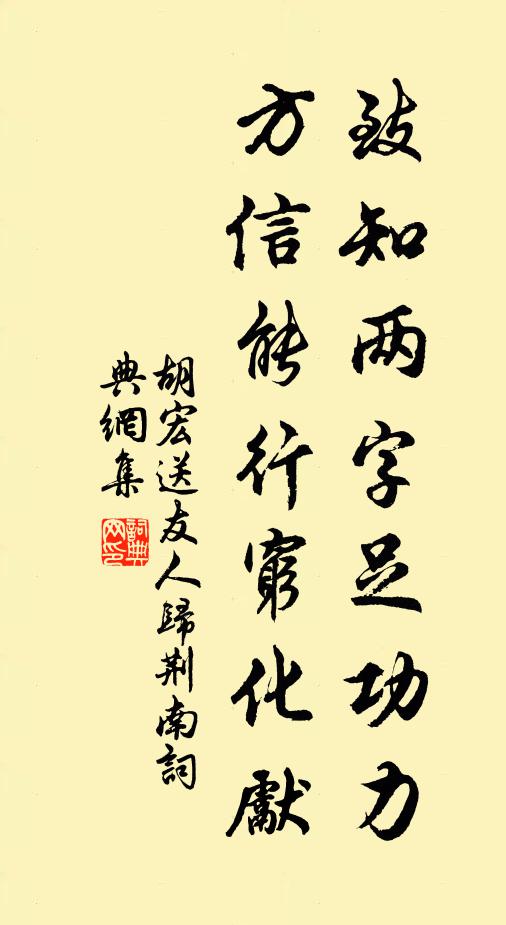 致知两字足功力
方信能行穷化献
胡宏送友人歸荆南詞
典網集
詞典网印